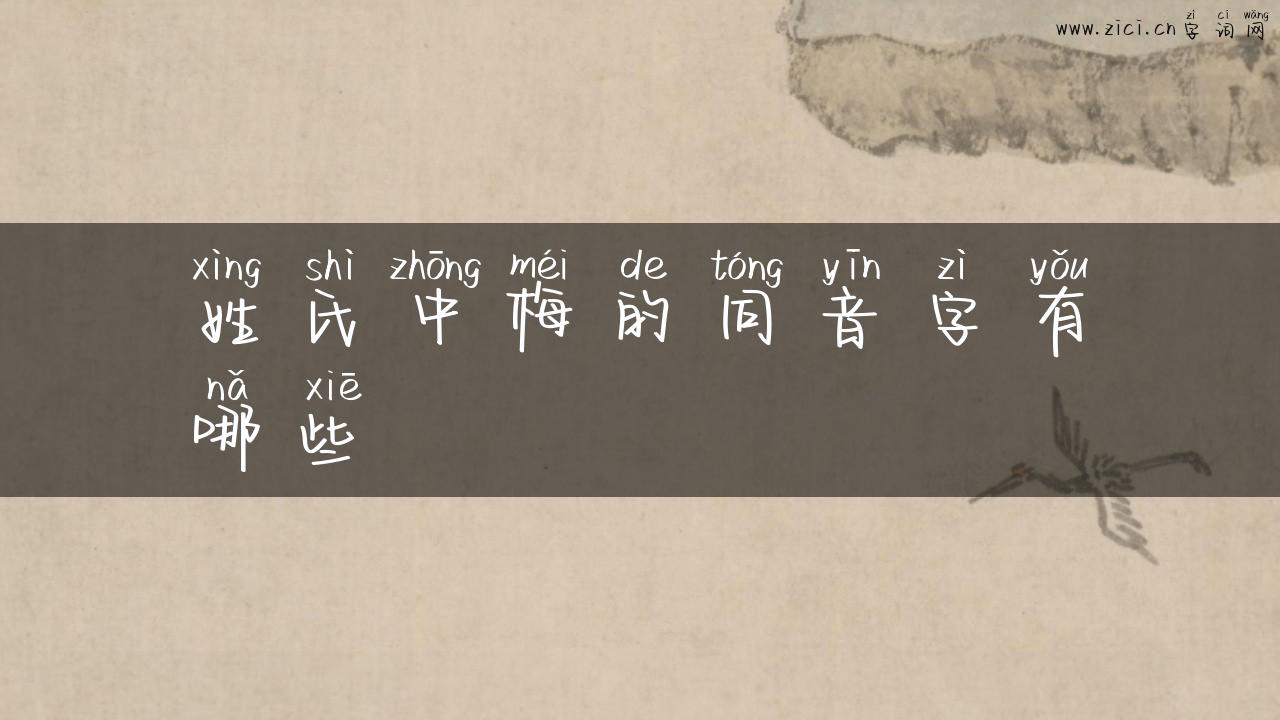 zì cí wǎng
www.zici.cn 字词网
xìng shì zhōng méi de tóng yīn zì yǒu
姓氏中梅的同音字有
nǎ xiē
哪些